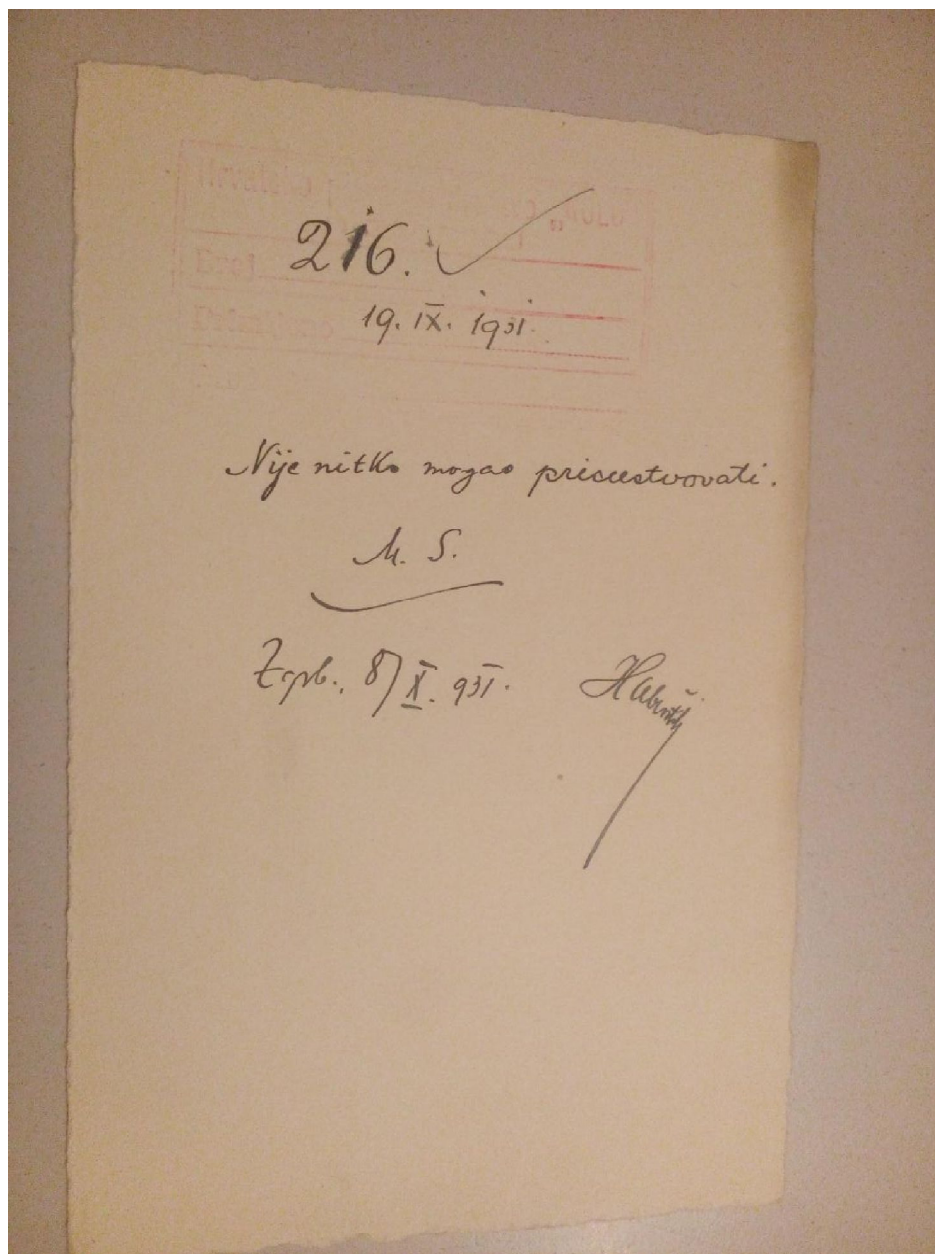 Hrvatsko
216.
Broj
Primljeno
19. IX. 1931.
Nije nitko mogao prisustvovati.
M. S.
Zgrb., 8/X. 931.